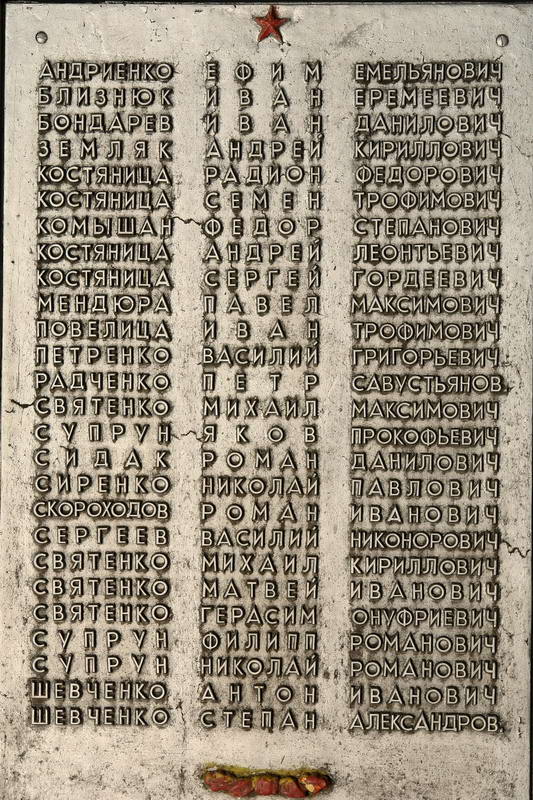 АНДРИЕНКО ЕФИМ ЕМЕЛЬЯНОВИЧ
БЛИЗНЮК ИВАН ЕРЕМЕЕВИЧ
БОНДАРЕВ ИВАН ДАНИЛОВИЧ
ЗЕМЛЯК АНДРЕЙ КИРИЛЛОВИЧ
КОСТЯНИЦА РАДИОН ФЕДОРОВИЧ
КОСТЯНИЦА СЕМЕН ТРОФИМОВИЧ
КОМЫШАН ФЕДОР СТЕПАНОВИЧ
КОСТЯНИЦА АНДРЕЙ ЛЕОНТЬЕВИЧ
КОСТЯНИЦА СЕРГЕЙ ГОРДЕЕВИЧ
МЕНДЮРА ПАВЕЛ МАКСИМОВИЧ
ПОВЕЛИЦА ИВАН ТРОФИМОВИЧ
ПЕТРЕНКО ВАСИЛИЙ ГРИГОРЬЕВИЧ
РАДЧЕНКО ПЕТР САВУСТЬЯНОВ.
СВЯТЕНКО МИХАИЛ МАКСИМОВИЧ
СУПРУН ЯКОВ ПРОКОФЬЕВИЧ
СИДАК РОМАН ДАНИЛОВИЧ
СИРЕНКО НИКОЛАЙ ПАВЛОВИЧ
СКОРОХОДОВ РОМАН ИВАНОВИЧ
СЕРГЕЕВ ВАСИЛИЙ НИКОНОРОВИЧ
СВЯТЕНКО МИХАИЛ КИРИЛЛОВИЧ
СВЯТЕНКО МАТВЕЙ ИВАНОВИЧ
СВЯТЕНКО ГЕРАСИМ ОНУФРИЕВИЧ
СУПРУН ФИЛИПП РОМАНОВИЧ
СУПРУН НИКОЛАЙ РОМАНОВИЧ
ШЕВЧЕНКО АНТОН ИВАНОВИЧ
ШЕВЧЕНКО СТЕПАН АЛЕКСАНДРОВ.